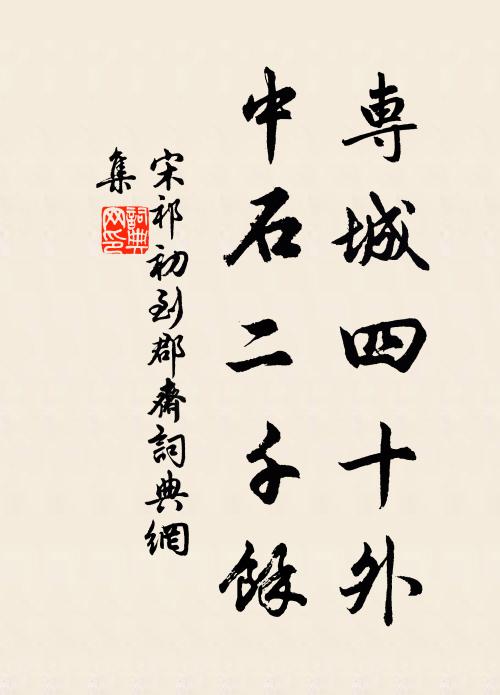 専城四十外
中石二千餘
宋祁初到郡齋詞典網
集
詞典
网印